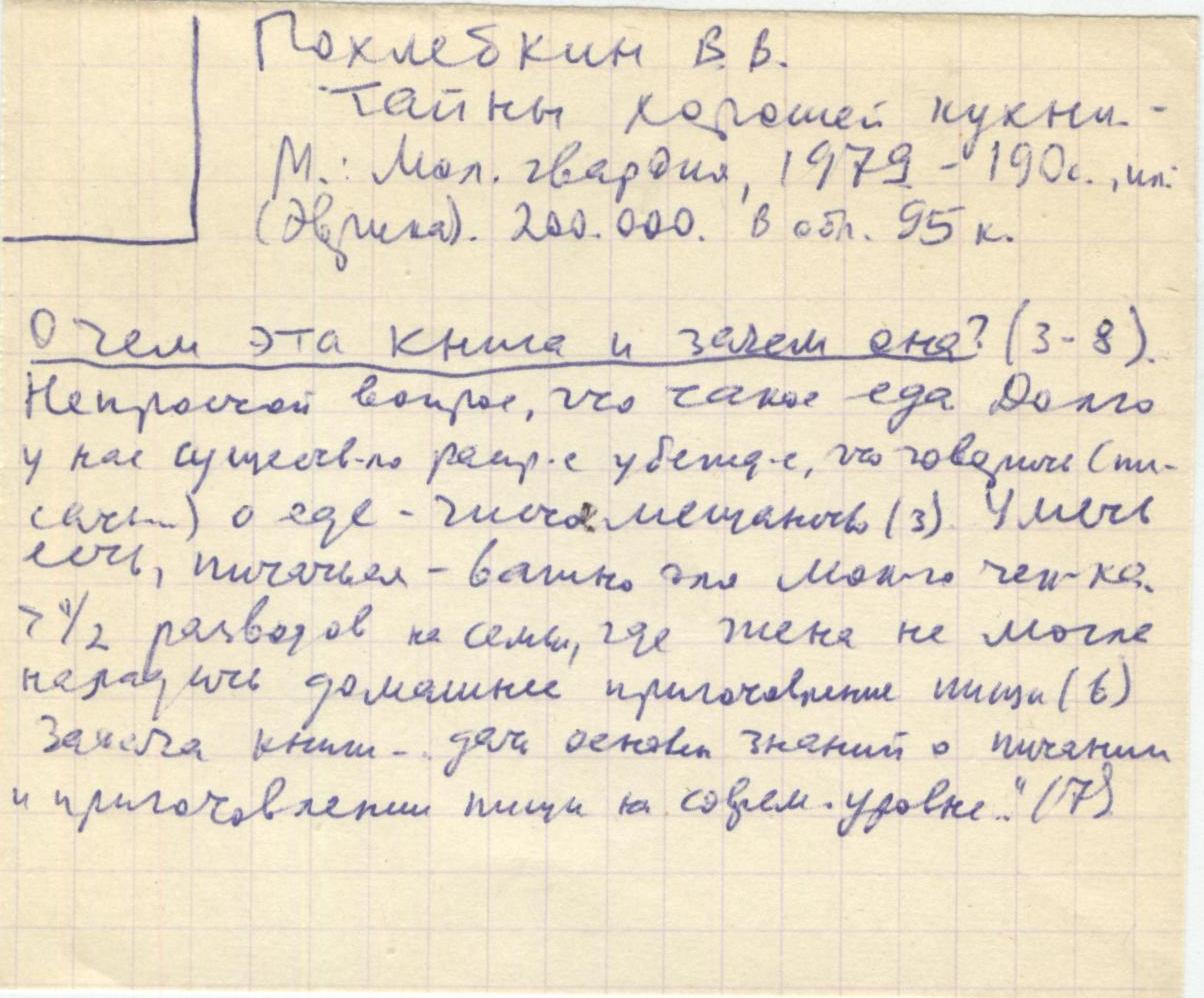 Похлебкин В.В.
Тайны хорошей кухни. -
М.: Мол. гвардия, 1979 - 190с., ил.
(Эврика). 200.000. В обл. 95 к.
О чем эта книга и зачем она? (3-8).
Непростой вопрос, что такое еда. Долго
у нас существ-ло распр-е убежд-е, что говорить (пи-
сать...) о еде - мещанство (3). Уметь
есть, питаться - важно для чел-ка.
> 1/2 разводов семьи, где жена не могла
наладить домашнее приготовление пищи (6)
Задача книги - дать основы знаний о питании
и приготовлении пищи на соврем. уровне.." (7)